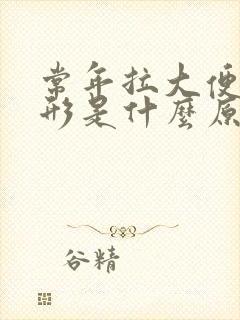 常年拉大便
形是什麼原
谷精